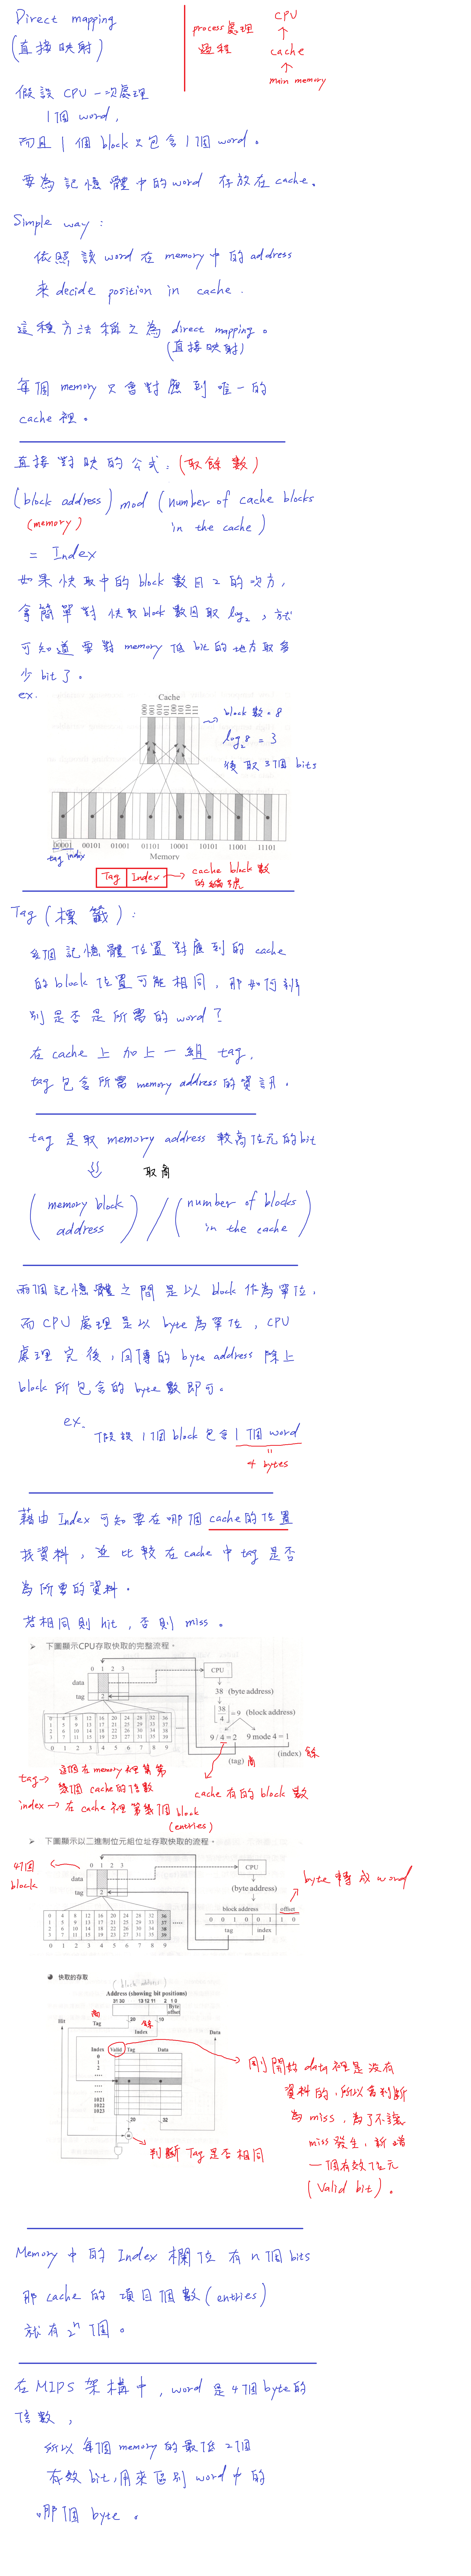 Direct mapping
(直接映射)
process處理
過程
CPU
↑
cache
↑
main memory
假設 CPU 一次處理
1個 word,
而且 1 個 block 只包含 1個 word。
要為記憶體中的word 存放在 cache。
Simple way:
依照該 word 在 memory 中的 address
來 decide position in cache.
這種方法稱之為 direct mapping。
(直接映射)
每個 memory 只會對應到唯一的
cache 裡。
直接對映的公式:(取餘數)
(block address) mod (number of cache blocks
(memory)
in the cache)
= Index
如果快取中的 block 數目 2 的次方,
會簡單對 快取 block 數目取 log₂, 就
可知道要對 memory 低 bit 的地方取多
少 bit 了。
ex.
Cache
000 001 010 011 100 101 110 111
→ block 數 = 8
log₂8 = 3
後取 3個 bits
00001 00101 01001 01101 10001 10101 11001 11101
tag index
Memory
Tag Index → cache block 數
的編號
Tag (標籤):
每個記憶體位置對應到的 cache
的 block 位置可能相同, 那如何辨
別是否是所需的 word?
在 cache 上加上一組 tag,
tag 包含所需 memory address 的資訊。
tag 是取 memory address 較高位元的bit
⇓ 取商
(memory block address) / (number of blocks in the cache)
兩個記憶體之間是以 block 作為單位,
而 CPU 處理是以 byte 為單位, CPU
處理完後, 回傳的 byte address 除上
block 所包含的 byte 數即可。
ex.
假設 1個 block 包含 1個 word
"
4 bytes
藉由 Index 可知要在哪個 cache的位置
找資料, 並比較在 cache 中 tag 是否
為所要的資料。
若相同則 hit, 否則 miss。
➢ 下圖顯示CPU存取快取的完整流程。
0 1 2 3
data
tag 2
CPU
38 (byte address)
⌊38/4⌋ = 9 (block address)
9 / 4 = 2 9 mode 4 = 1
(tag) 商 (index) 餘
0 4 8 12 16 20 24 28 32 36
1 5 9 13 17 21 25 29 33 37
2 6 10 14 18 22 26 30 34 38
3 7 11 15 19 23 27 31 35 39
0 1 2 3 4 5 6 7 8 9
tag → 這個在 memory 裡算第
幾個 cache的倍數
cache 有的 block 數
index → 在 cache 裡第幾個 block
(entries)
➢ 下圖顯示以二進制位元組位址存取快取的流程。
4個
block
0 1 2 3
data
tag 2
CPU
(byte address)
byte 轉成 word
block address offset
0 0 1 0 0 1 1 0
tag index
0 4 8 12 16 20 24 28 32 36
1 5 9 13 17 21 25 29 33 37
2 6 10 14 18 22 26 30 34 38
3 7 11 15 19 23 27 31 35 39
0 1 2 3 4 5 6 7 8 9
快取的存取
(block address)
Address (showing bit positions)
31 30 13 12 11 2 1 0
Byte
offset
商 餘
Hit Tag 20 10 Data
Index
Index Valid Tag Data
0
1
2
....
....
....
1021
1022
1023
20 32
=
判斷 Tag 是否相同
剛開始 data 裡是沒有
資料的, 所以會判斷
為 miss, 為了不讓
miss 發生, 新增
一個有效位元
(Valid bit)。
Memory 中的 Index 欄位有 n 個 bits
那 cache 的 項目個數 (entries)
就有 2ⁿ 個。
在 MIPS 架構中, word 是 4個 byte 的
倍數,
所以每個 memory 的最低 2個
有效 bit, 用來區別 word 中的
哪個 byte。